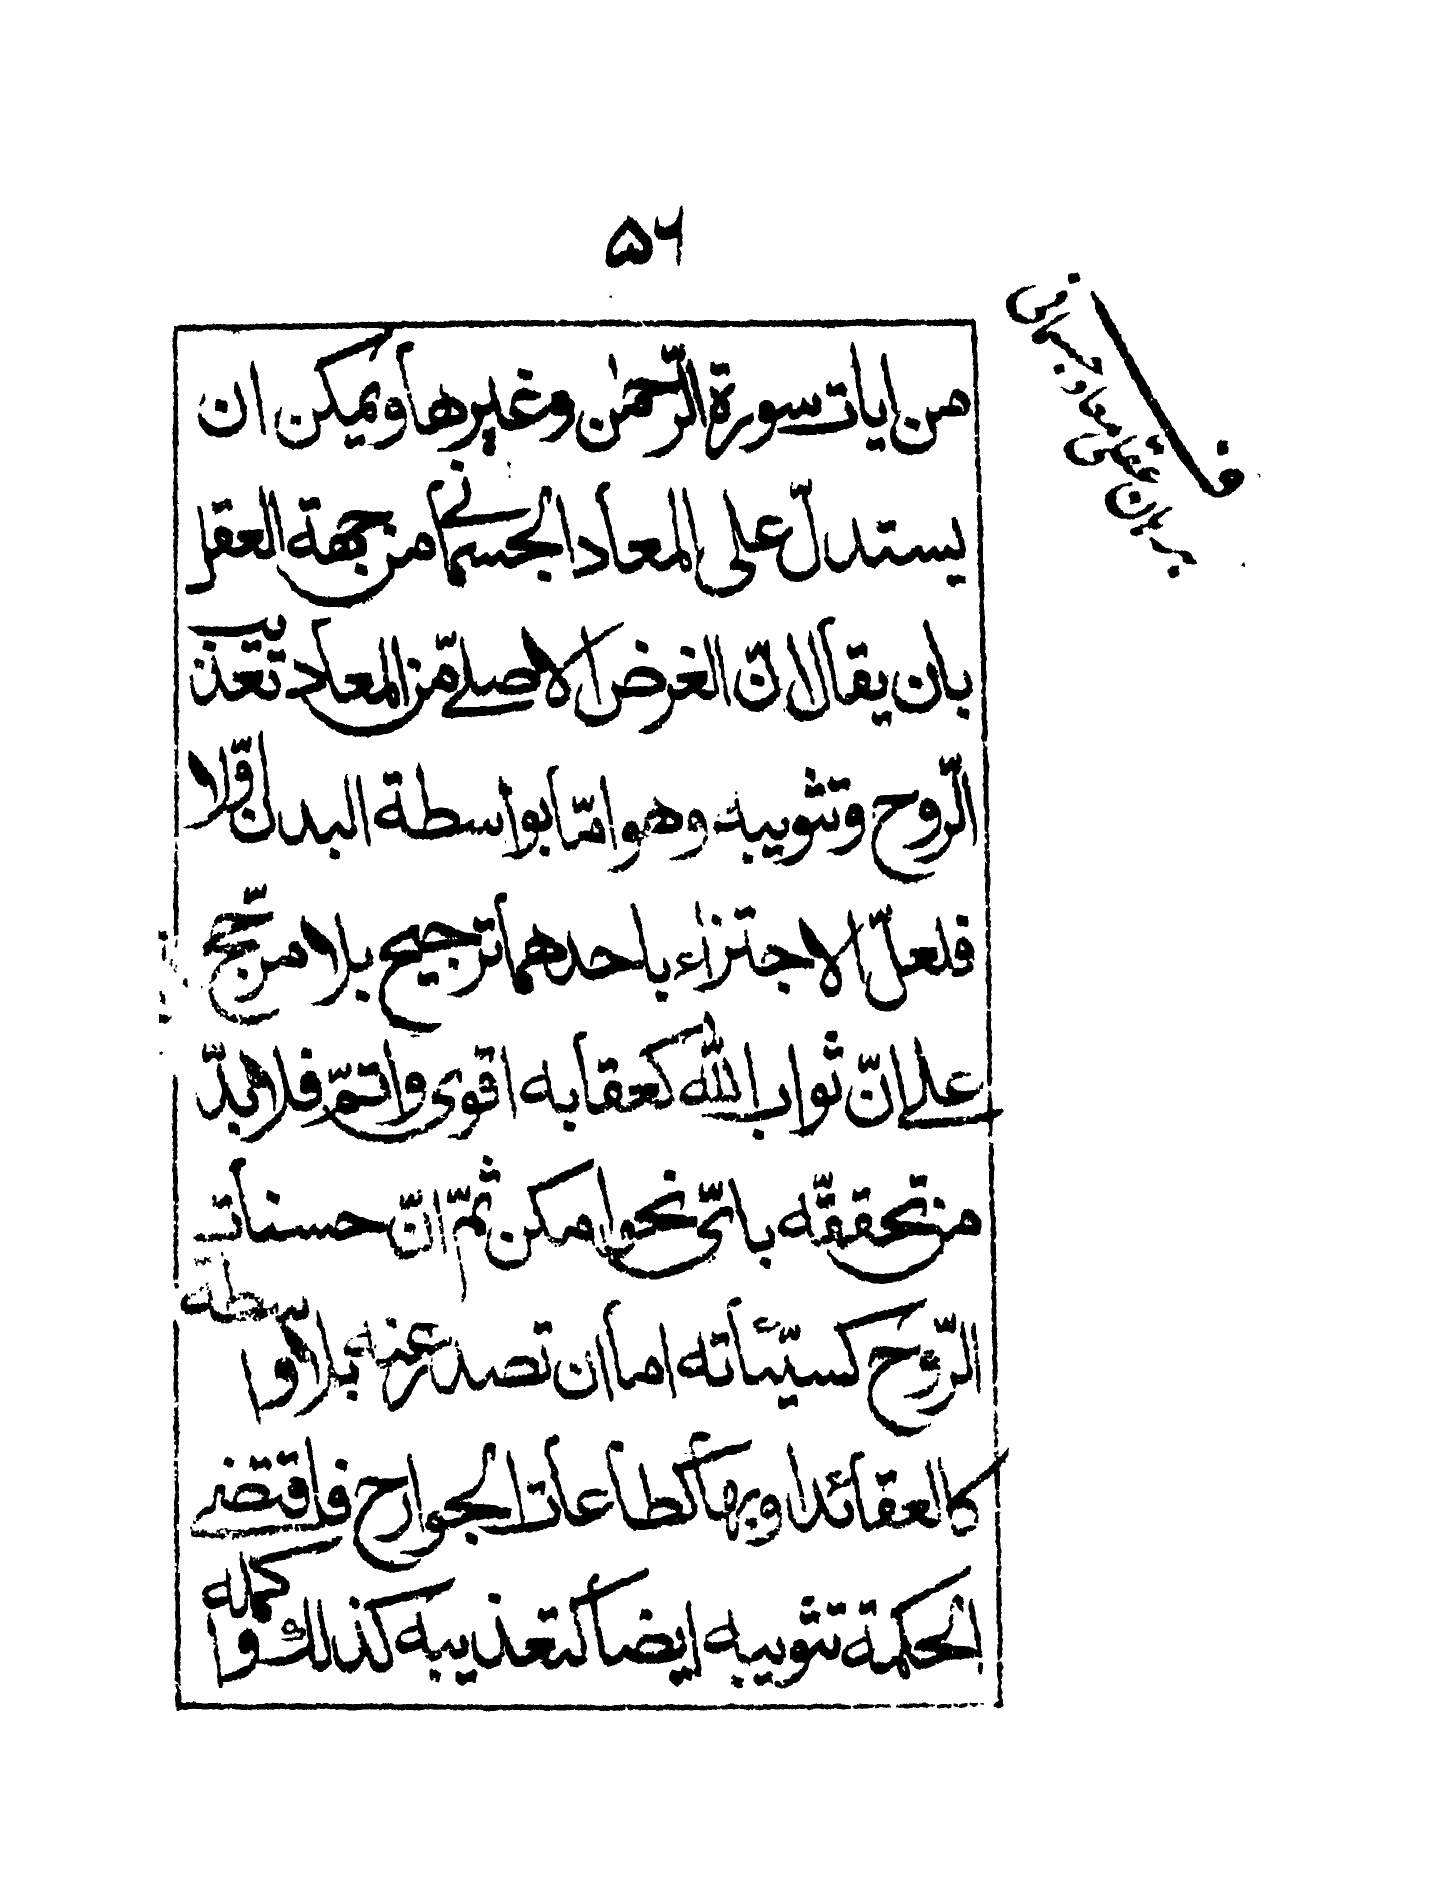 ۵۶
من ايات سورة الرّحمٰن وغيرها ويمكن ان
يستدلّ على المعاد الجسمانى من جهة العقل
بان يقال انّ الغرض الاصلے من المعاد تعذيب
الرّوح وتثويبه وهو امّا بواسطة البدن اولا
فلعلّ الاجتزاء باحدهما ترجيح بلا مرجّح
علے انّ ثواب اللّه كعقابه اقوى واتمّ فلا بدّ
من تحققّه باىّ نحو امكن ثمّ انّ حسنات
الرّوح كسيّئاته اما ان تصدر عنه بلا واسطة
كالعقائد او بها كطاعات الجوارح فاقتضے
الحكمة تثويبه ايضا كتعذيبه كذلك واكمله
ف
برهان عقلى معاد جسمانى